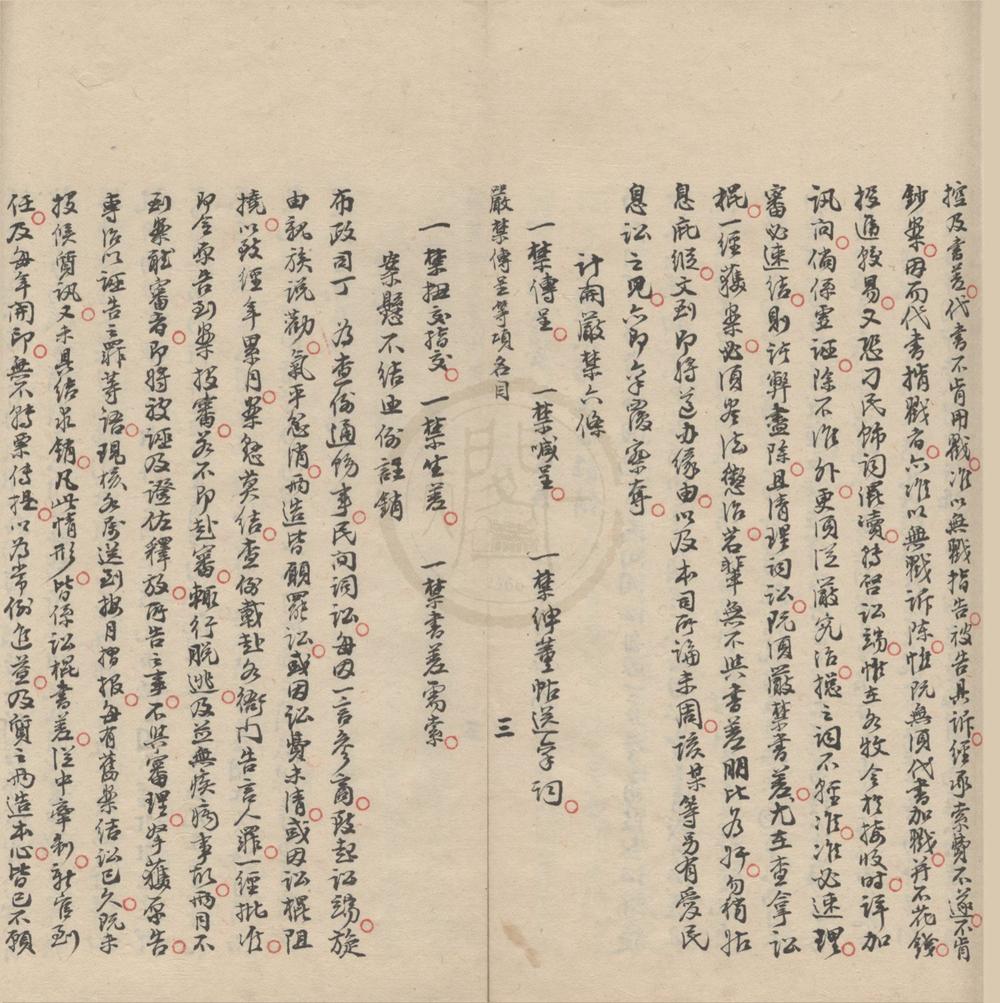 控及書差代書不肯用戳准以無戳指告被告具訴經承索費不遂不肯
鈔案因而代書揹戳者亦准以無戳訴陳惟既無須代書加戳并不花錢
投遞較易又恐刁民飾詞混瀆特啓訟端惟在各牧令於接收時詳加
訊問倘係虛誣除不准外更須從嚴究治總之詞不輕准准必速理
審必速結則訟弊盡除且清理詞訟既須嚴禁書差尤在查拿訟
棍一經獲案必須盡法懲治若輩無不與書差朋比為奸勿稍姑
息庇縱文到即將遵办緣由以及本司所論未周該某等另有愛民
息訟之見亦即稟覆察奪
計開嚴禁六條
一禁傳呈 一禁喊呈 一禁紳董帖送稟詞
嚴禁傳呈等項各目
三
一禁扭交指交 一禁坐差 一禁書差需索
案懸不結照例註銷
布政司丁 為查例通飭事民間詞訟每因一言參商致起訟端旋
由親族説勸氣平忿消兩造皆願罷訟或因訟費未清或因訟棍阻
撓以致經年累月案懸莫結查例載赴各衙門告言人罪一經批准
即令原告到案投審若不即赴審輒行脫逃及並無疾病事故兩月不
到案聽審者即將被誣及證佐釋放所告之事不與審理拏獲原告
專治以誣告之罪等語現核各属送到按月摺報每有舊案結訟已久既未
投候質訊又未具結求銷凡此情形皆係訟棍書差從中牽制新官到
任及每年開印無不轉票傳提以為常例進益及質之兩造本心皆已不願